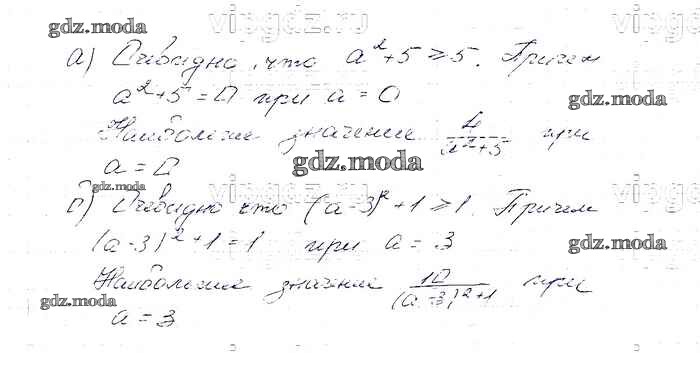 vipgdz.ru vipgdz.ru
gdz.moda
а) Очевидно, что a²+5 ≥ 5. Причем
a²+5 = 0 при a = 0
gdz.moda
Наибольшее значение 4/(a²+5) при
gdz.moda
a = 0
vipgdz.ru vipgdz
gdz.moda
б) Очевидно что (a-3)²+1 ≥ 1. Причем
(a-3)²+1 = 1 при a = 3
gdz.moda
Наибольшее значение 10/((a-3)²+1 при
gdz.moda
a = 3